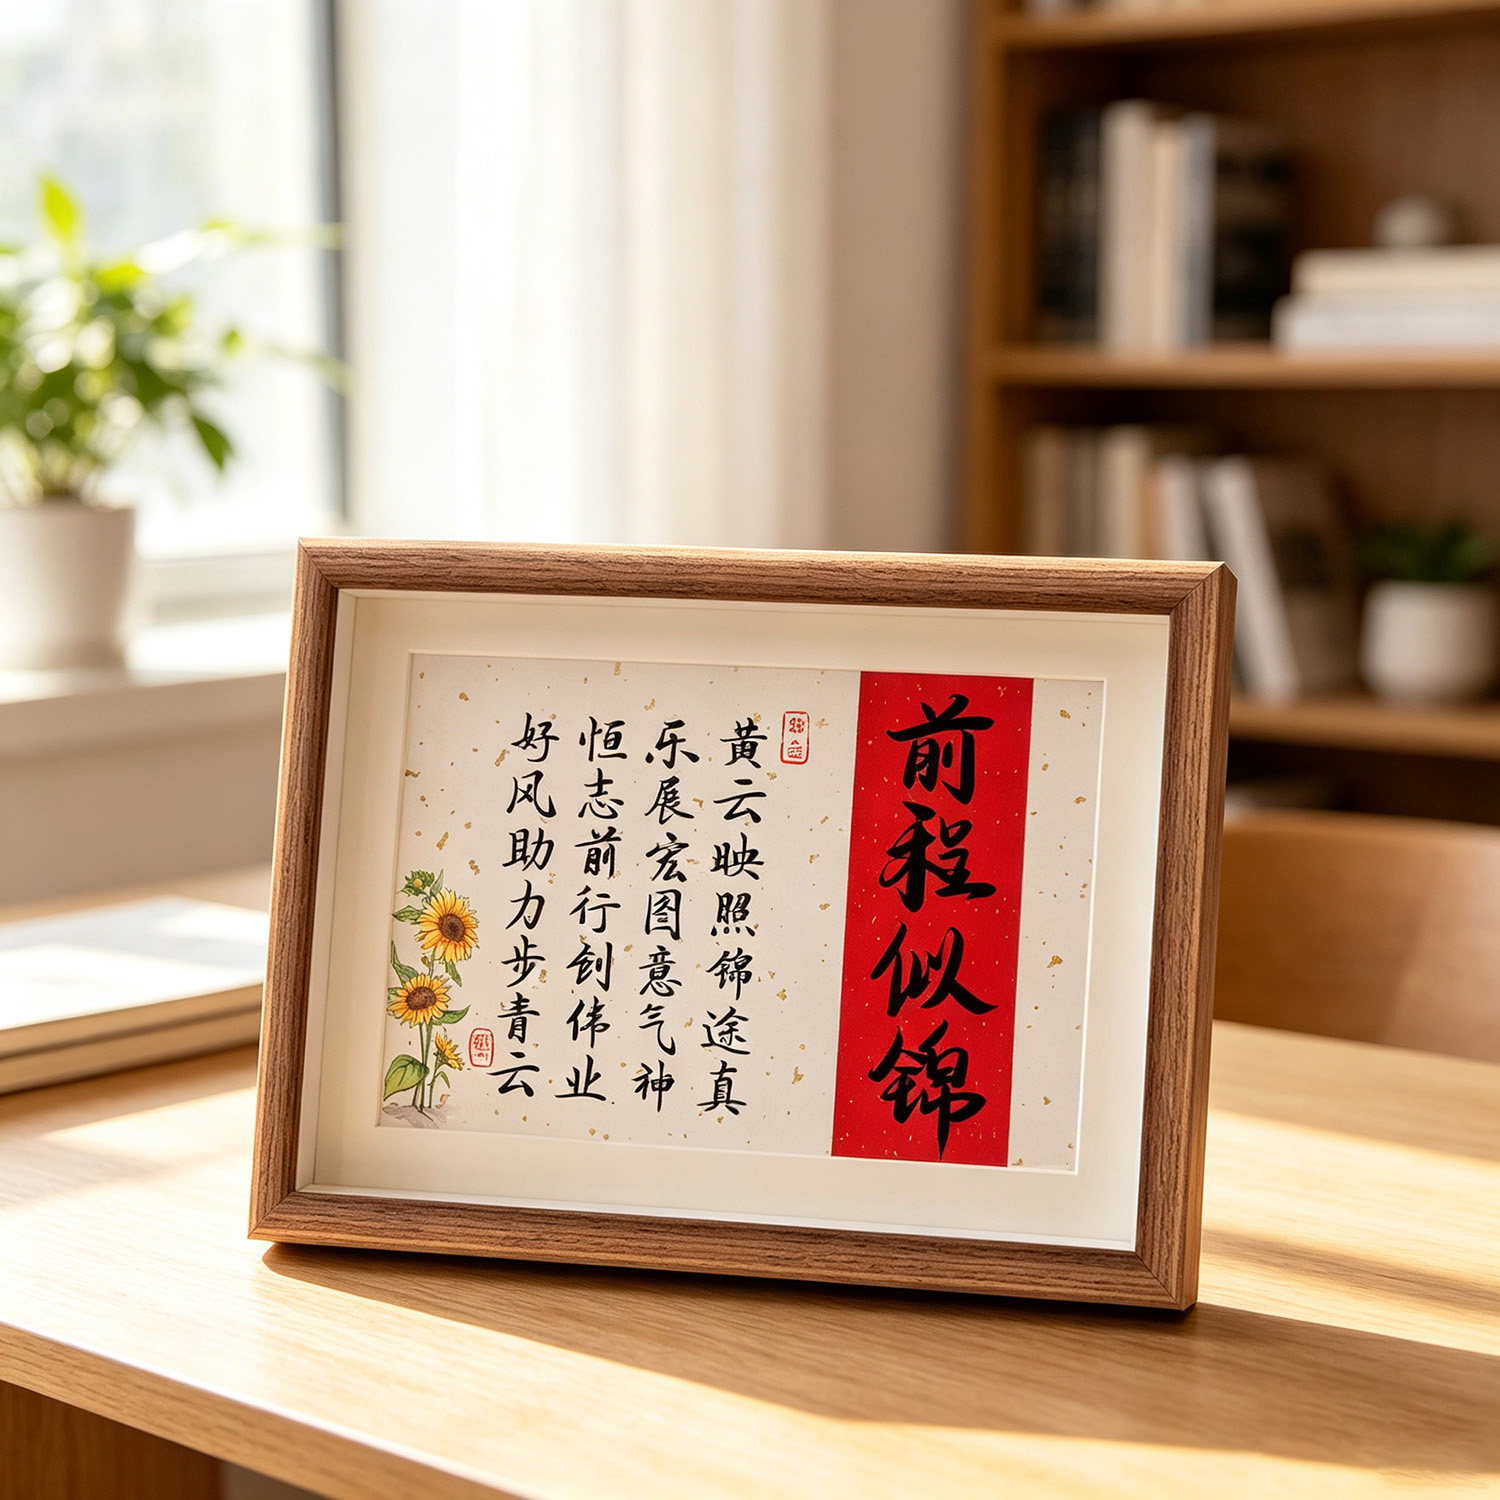 前程似锦
黄云映照锦途真
乐展宏图意气神
恒志前行创伟业
好风助力步青云